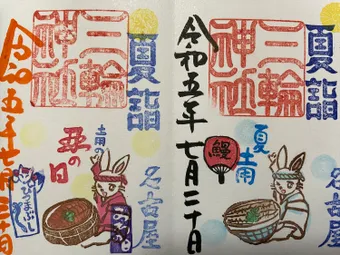 夏詣
三輪
神社
令和五年七月二十日
夏
土用
鰻
名古屋
夏詣
三輪
神社
令和五年七月三十日
土用
丑の日
ひつまぶし
名古屋